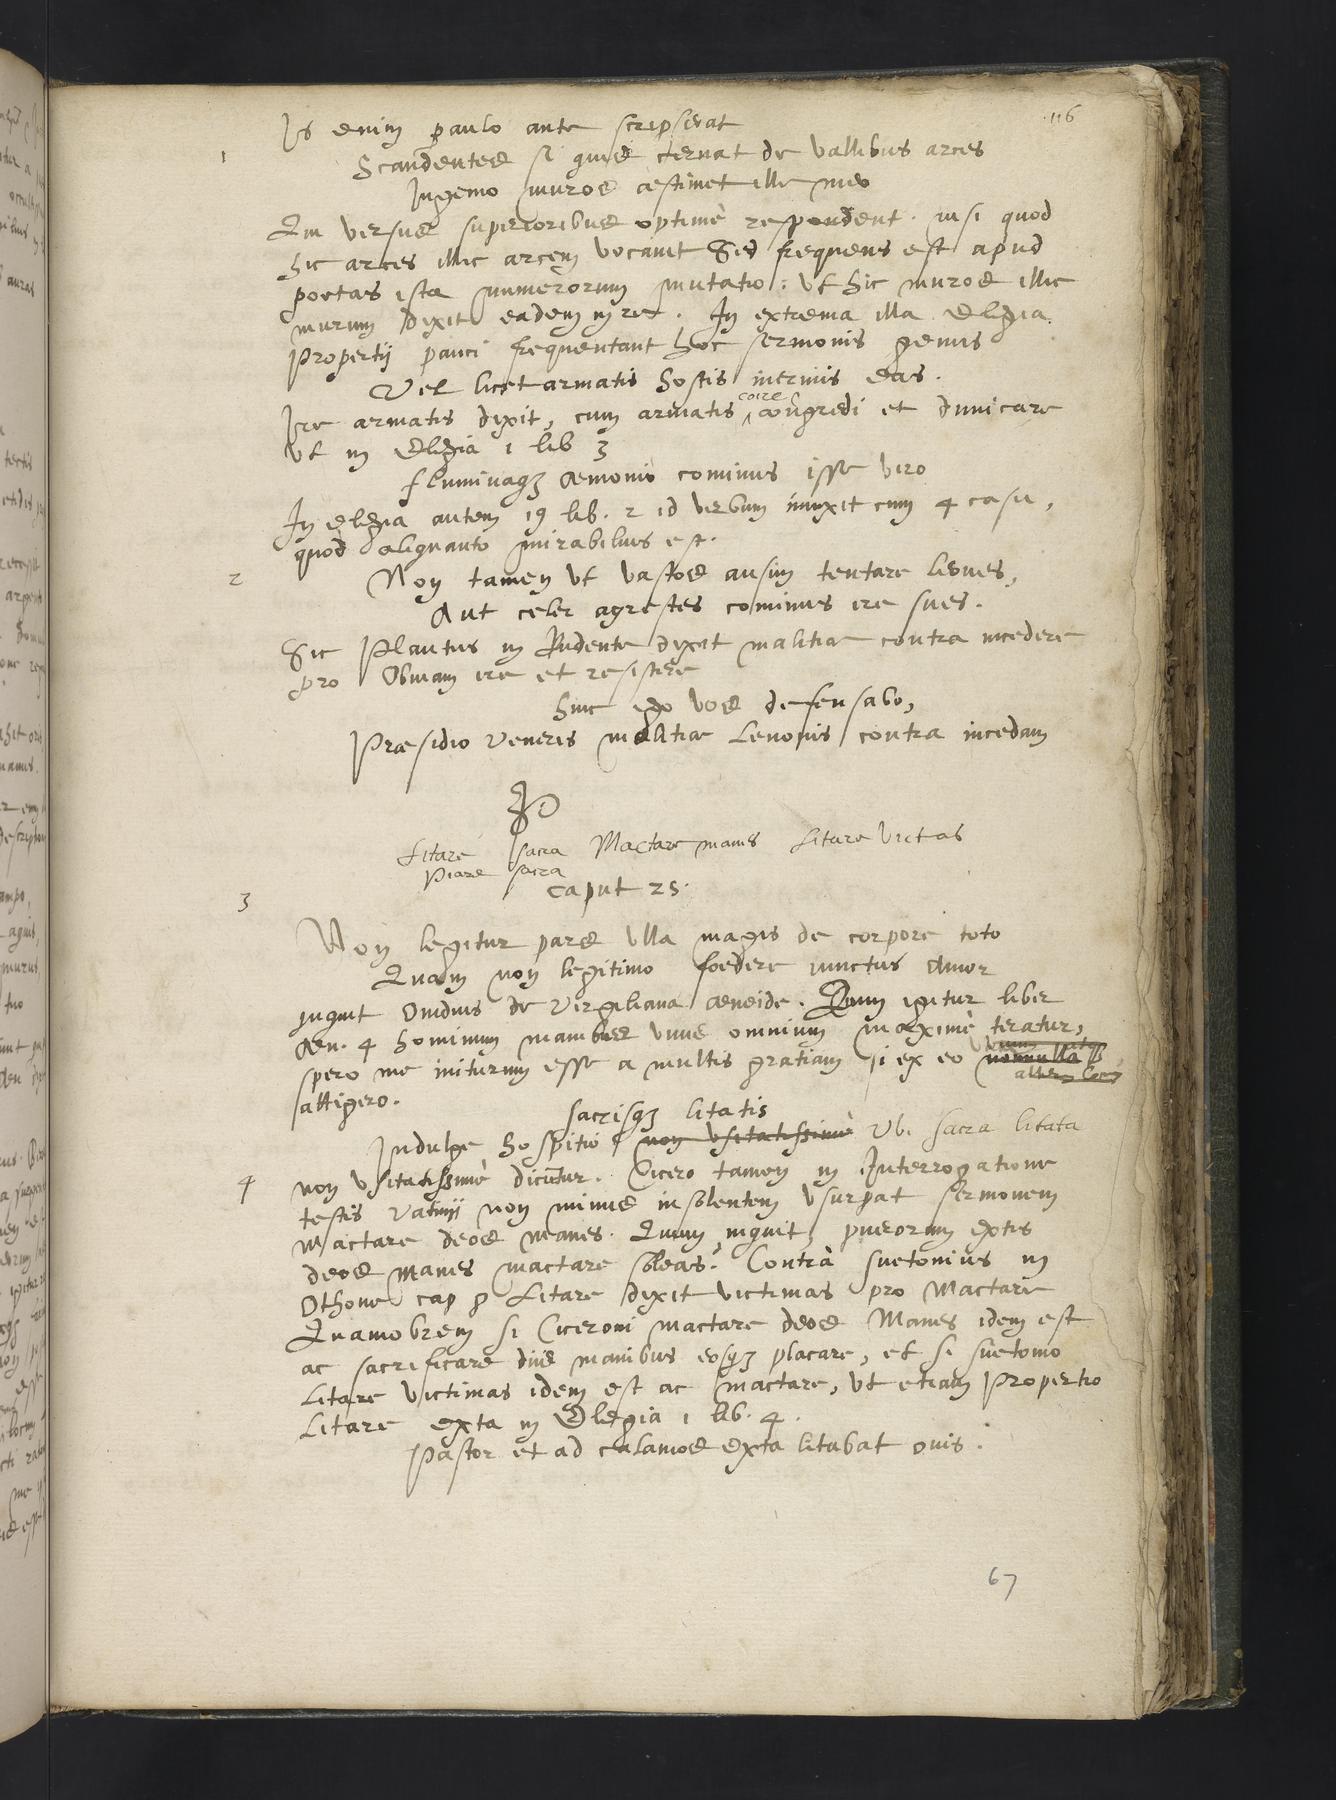 116
Is enim paulo ante scripserat
1
Scandentes si quis cernat de vallibus arces
Ingenio muros aestimet ille meo
Qui versus superioribus optimè respondent. nisi quod
hic arces illic arcem vocavit Sed frequens est apud
poetas ista numerorum mutatio: ut hic muros illic
murum dixit eadem in re. In extrema illa Elegia
Propertij pauci frequentant hoc sermonis genus
Vel licet armatis hostis inermis eas.
Ire armatis dixit, cum armatis coire congredi et dimicare
ut in Elegia 1 lib 3
fluminaqz Aemonio cominus isse viro
In elegia autem 19 lib. 2 id verbum iunxit cum 4 casu,
quod aliquanto mirabilius est.
2
Non tamen ut vastos ausim tentare leones,
Aut celer agrestes cominus ire sues.
Sic Plautus in Rudente dixit malitiae contra incedere
pro obviam ire et resistere
hinc ego vos defensabo,
Praesidio Veneris malitiae Lenonis contra incedam
Litare sacra Mactare manes Litare victas
Piare sacra
caput 25.
3
Non legitur pars ulla magis de corpore toto
Quam non legitimo foedere iunctus Amor
inquit Ovidius de Vergiliana aeneide. Quum igitur liber
Aen. 4 hominum manibus unus omnium maximè teratur,
spero me initurum esse a multis gratiam si ex eo nonnulla
attigero.
sacrisqz litatis
Indulge hospitio non usitatissimè Ubi sacra litata
4
non usitatissimè dicuntur. Cicero tamen in Interrogatione
testis Vatinij non minus insolentem usurpat sermonem
Mactare deos manes. Quum, inquit, puerorum extis
deos Manes mactare soleas. Contrà suetonius in
Othone cap 8 Litare dixit victimas pro Mactare
Quamobrem si Ciceroni mactare deos Manes idem est
ac sacrificare diis manibus eosqz placare, et si suetonio
litare victimas idem est ac mactare, ut etiam Propertio
Litare exta in Elegia 1 lib. 4.
Pastor et ad calamos exta litabat ovis.
67